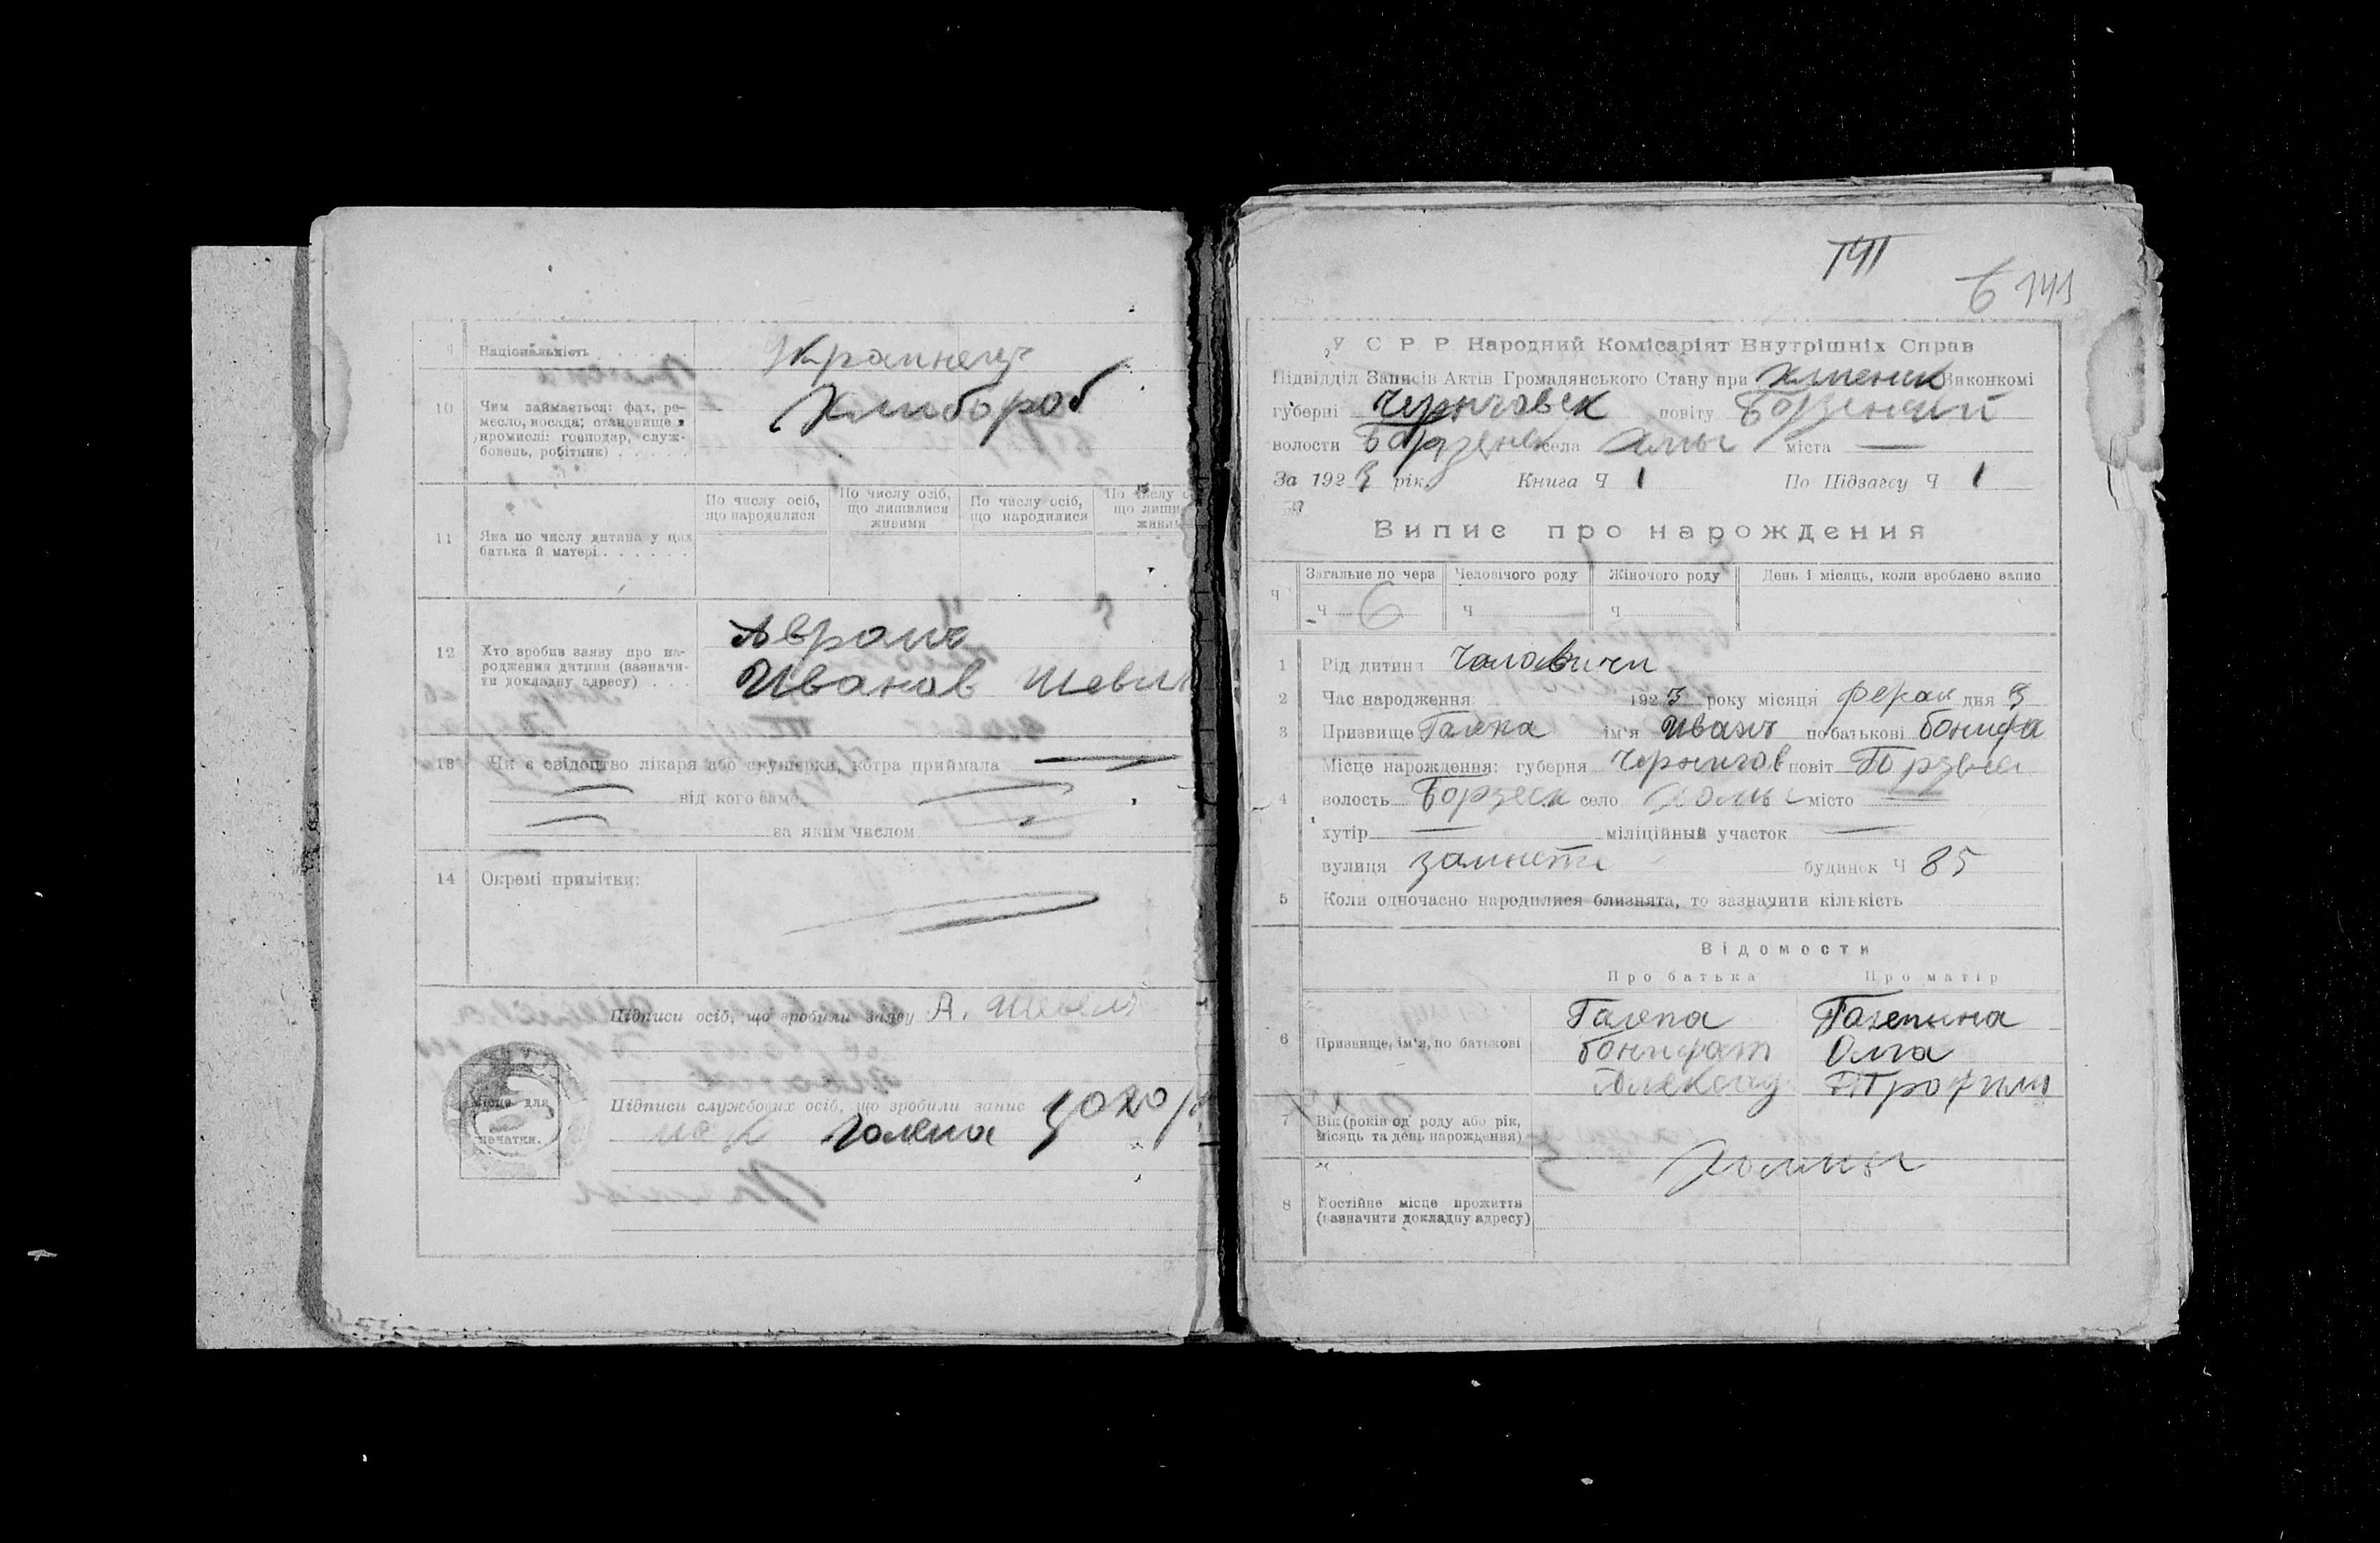 9 Національність Украинец
10 Чим займається: фах, ре-
месло, посада; становище в
промислі: господар, служ-
бовець, робітник) Хлибороб
11 Яка по числу дитина у цих
батька й матері
По числу осіб,
що народилися
По числу осіб,
що лишилися
живими
По числу осіб,
що народилися
По числу о
що лиши
живим
12 Хто вробив заяву про на-
родження дитини (зазначи-
ти докладну адресу)
Аврам
Иванов Шевел
13 Чи є свідоцтво лікаря або акушерки, котра приймала —
— від кого саме —
— за яким числом —
14 Окремі примітки: —
Підписи осіб, що зробили заяву А. Шевель
Місце для
печатки.
Підписи службових осіб, що зробили запис
Галепа
141
6 141
У С Р Р Народний Комісаріят Внутрішніх Справ
Підвідділ Записів Актів Громадянського Стану при Виконкомі
губерні Черниговск повіту Борзенский
волости Борзенск села міста —
За 1923 рік. Книга Ч 1 По Підзагсу Ч 1
Випис про нарождения
Ч
Загальне по черв
Человічого роду
Жіночого роду
День і місяць, коли вроблено запис
Ч 6
Ч
Ч
1 Рід дитини Чоловичи
2 Час народження: 1923 року місяця Феврал дня 3
3 Призвище Галепа ім'я Иван по батькові Бонифа
Місце нарождення: губерня Чернигов повіт Борзна
4 волость Борзеск село Холмы місто —
хутір — міліційный участок —
вулиця будинок Ч 85
5 Коли одночасно народилися близнята, то зазначити кількість
Відомости
Про батька
Про матір
6 Призвище, ім'я, по батькові
Галепа
Бонифат
Александ
Галепина
Олга
Трофим
7 Вік (років од роду або рік,
місяць та день нарождення)
Холмы
8 Постійне місце прожиття
(зазначити докладну адресу)